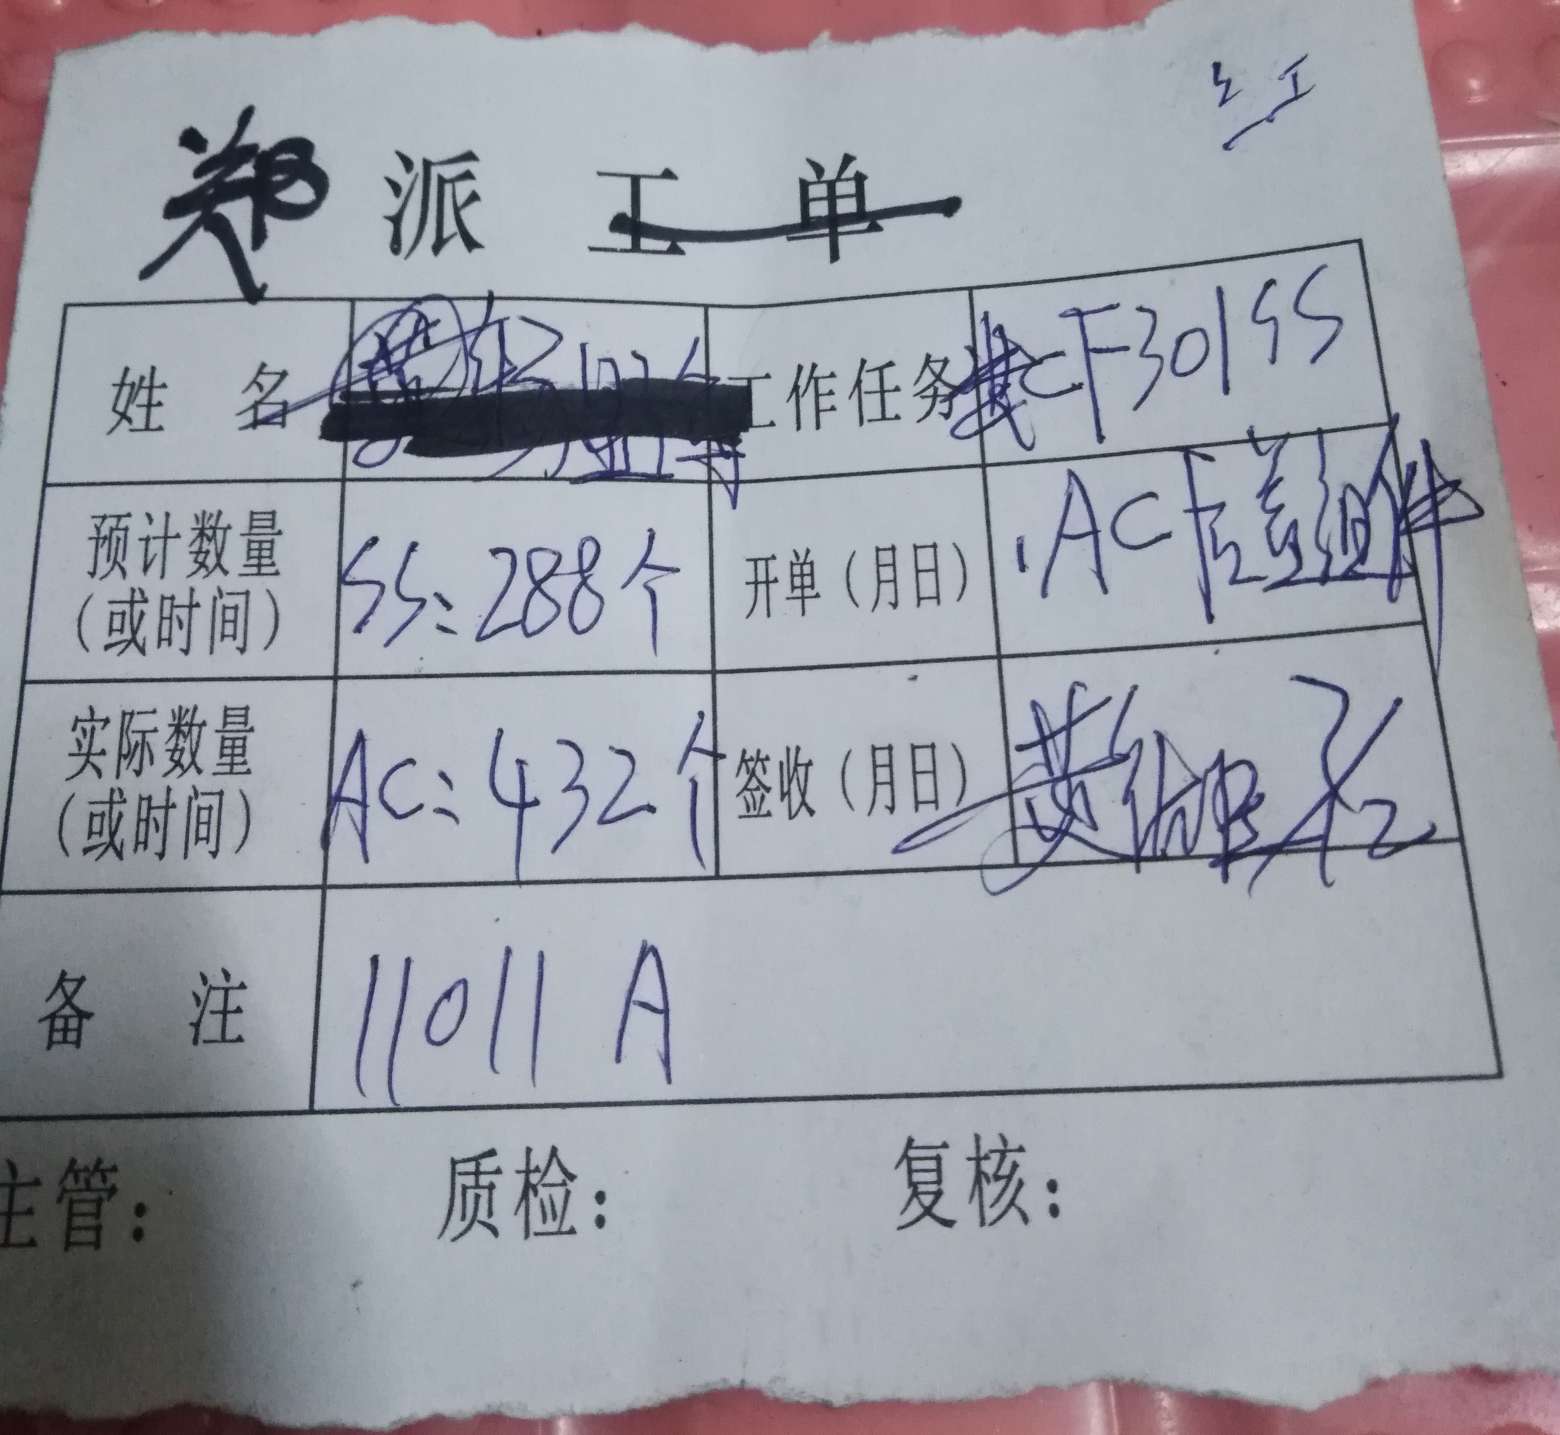 红
郑 派 工 单
姓 名 工作任务 CF301SS
预计数量(或时间) SS: 288个 开单(月日) AC 后盖组件
实际数量(或时间) AC: 432个 签收(月日) 黄
备 注 11011 A
主管: 质检: 复核: